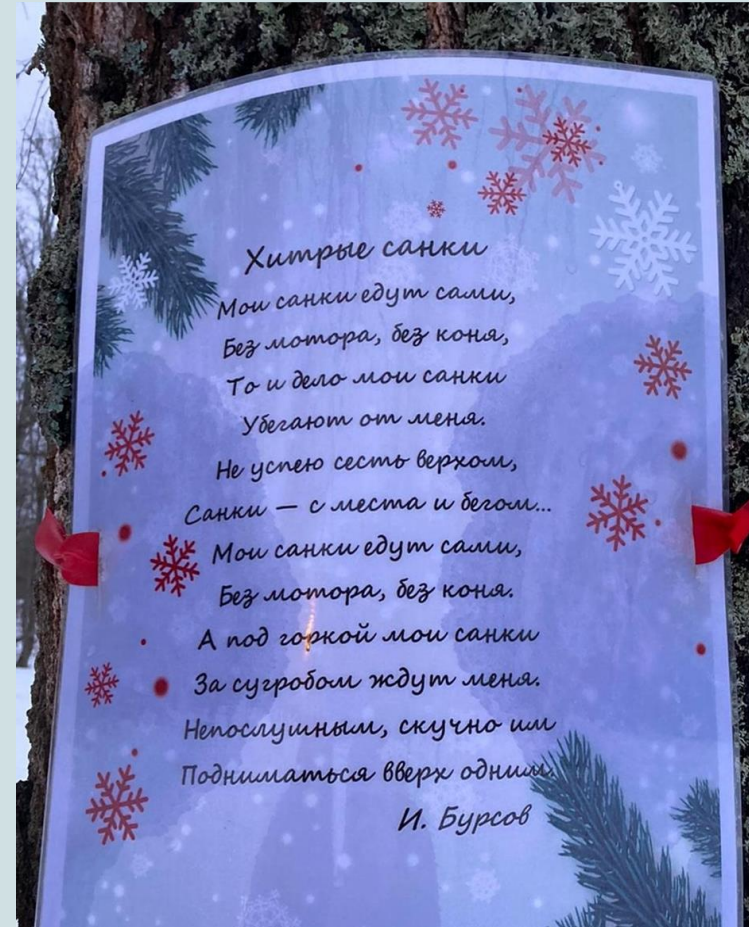 Хитрые санки
Мои санки едут сами,
Без мотора, без коня,
То и дело мои санки
Убегают от меня.
Не успею сесть верхом,
Санки — с места и бегом...
Мои санки едут сами,
Без мотора, без коня.
А под горкой мои санки
За сугробом ждут меня.
Непослушным, скучно им
Подниматься вверх одним.
И. Бурсов